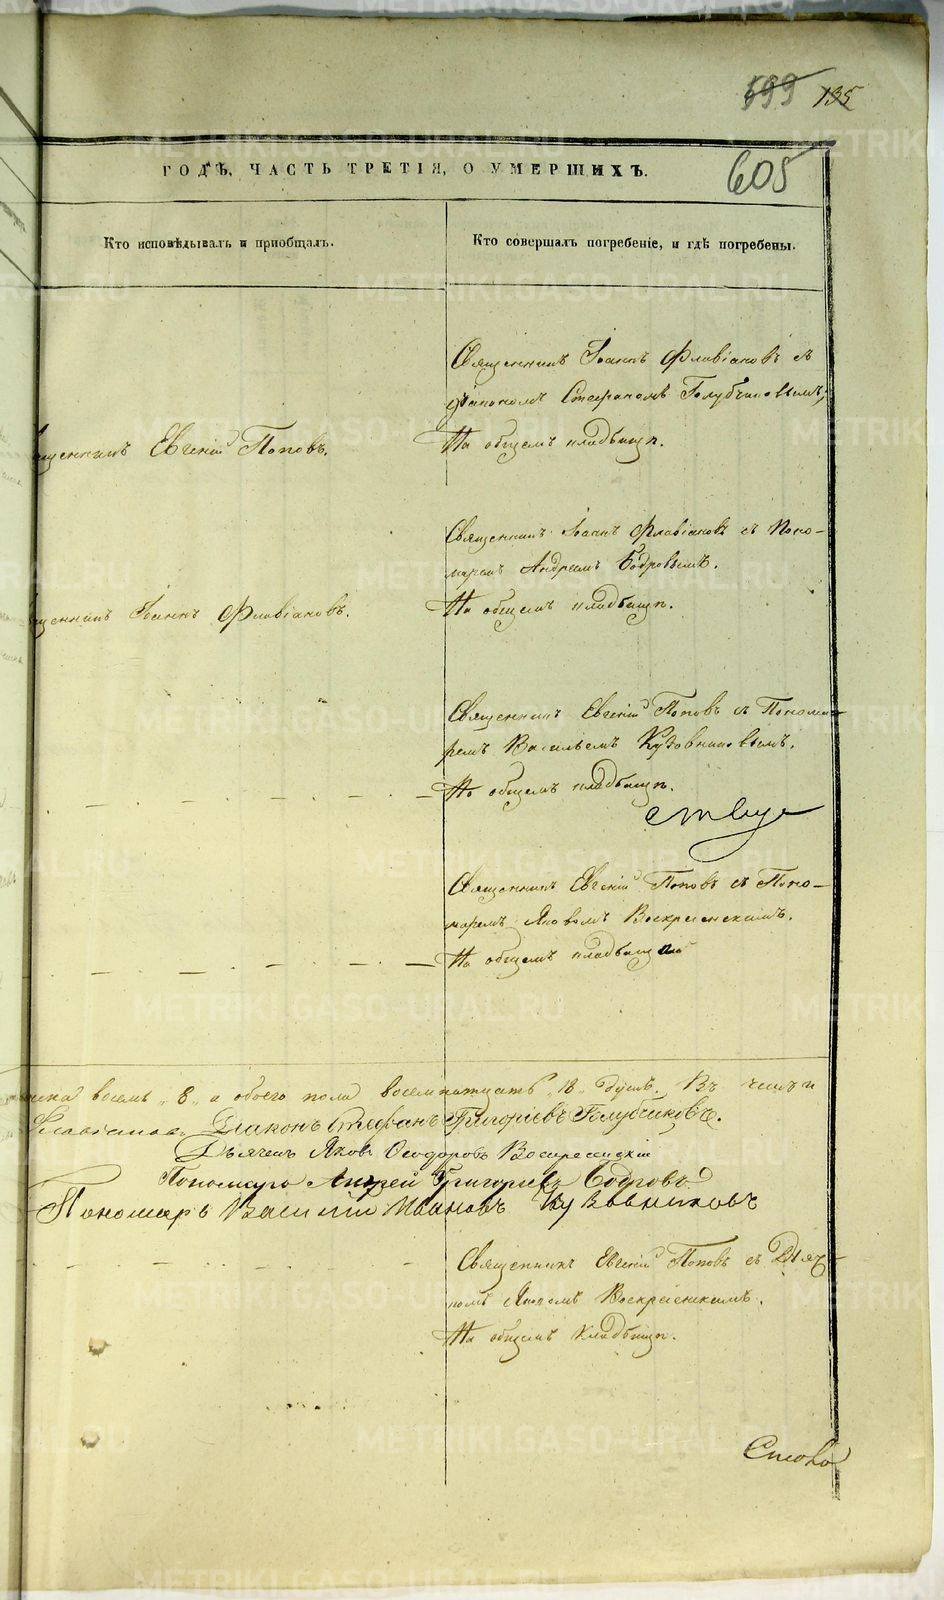 599 135
605
ГОДѢ, ЧАСТЬ ТРЕТІЯ, О УМЕРШИХЪ.
Кто исповѣдывалъ и пріобщалъ.
Кто совершалъ погребеніе, и гдѣ погребены.
Священникъ Іоаннъ Флавіановъ съ
діакономъ Стефаномъ Голубчиковымъ;
На общемъ кладбищѣ.
щенникъ Евгеній Поповъ.
Священникъ Іоаннъ Флавіановъ съ Поно-
маремъ Андреемъ Бодровымъ.
На общемъ кладбищѣ.
щенникъ Іоаннъ Флавіановъ.
Священникъ Евгеній Поповъ съ Понома-
ремъ Васильемъ Кузовниковымъ.
На общемъ кладбищѣ.
ству
Священникъ Евгеній Поповъ съ Поно-
маремъ Яковомъ Воскресенскимъ.
На общемъ кладбищѣ
восемь „8„ а обоего пола восемнатцать „18„ душъ. Въ чемъ и
Флавіановъ. Діаконъ Стефанъ Григорьевъ Голубчиковъ.
Дьячекъ Яковъ Ѳеодоровъ Воскресенскій
Пономарь Андрей Григорьевъ Бодровъ
Пономарь Василій Ивановъ Кузовниковъ
Священникъ Евгеній Поповъ съ Дьяч-
комъ Яковомъ Воскресенскимъ.
На общемъ кладбищѣ.
METRIKI.GASO-URAL.RU